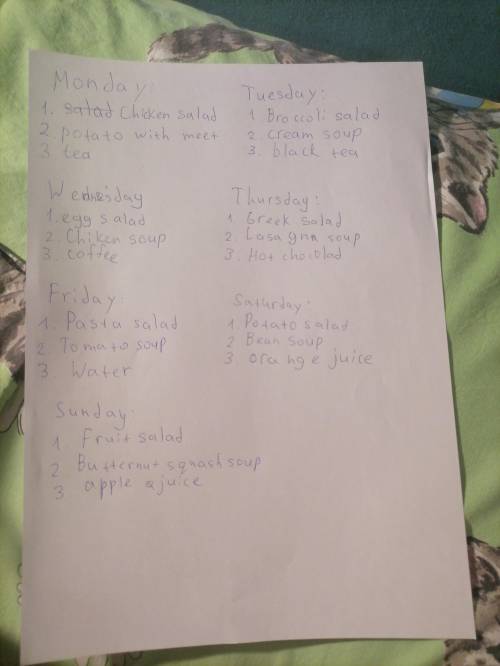 Monday:
1. salad Chicken salad
2. potato with meet
3 tea
Tuesday:
1 Broccoli salad
2. cream soup
3. black tea
Wednesday
1. egg salad
2. Chiken soup
3. coffee
Thursday:
1. Greek salad
2. Lasagna soup
3. Hot choiblad
Friday:
1. Pasta salad
2. Tomato soup
3. Water
Saturday:
1. Potato salad
2 Bean soup
3 orange juice
Sunday:
1 Fruit salad
2 Butternut squash soup
3 apple juice